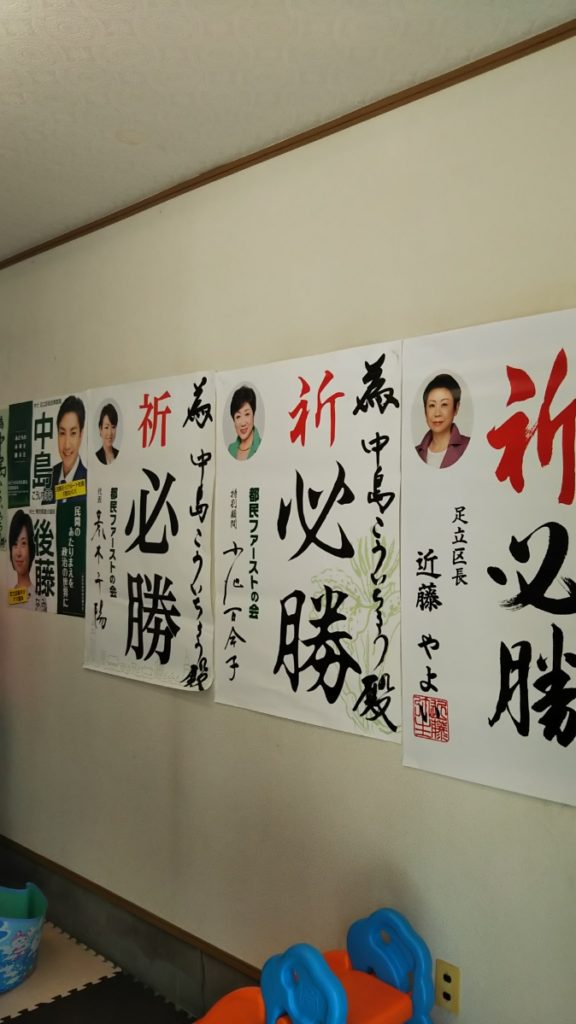 中島
こういちろう
後藤
民間の
あたりまえを
政治の世界に
為 中島こういちろう殿
祈
必勝
都民ファーストの会
代表
荒木千陽
為 中島こういちろう殿
祈
必勝
都民ファーストの会
特別顧問
小池百合子
祈
必勝
足立区長
近藤 やよい